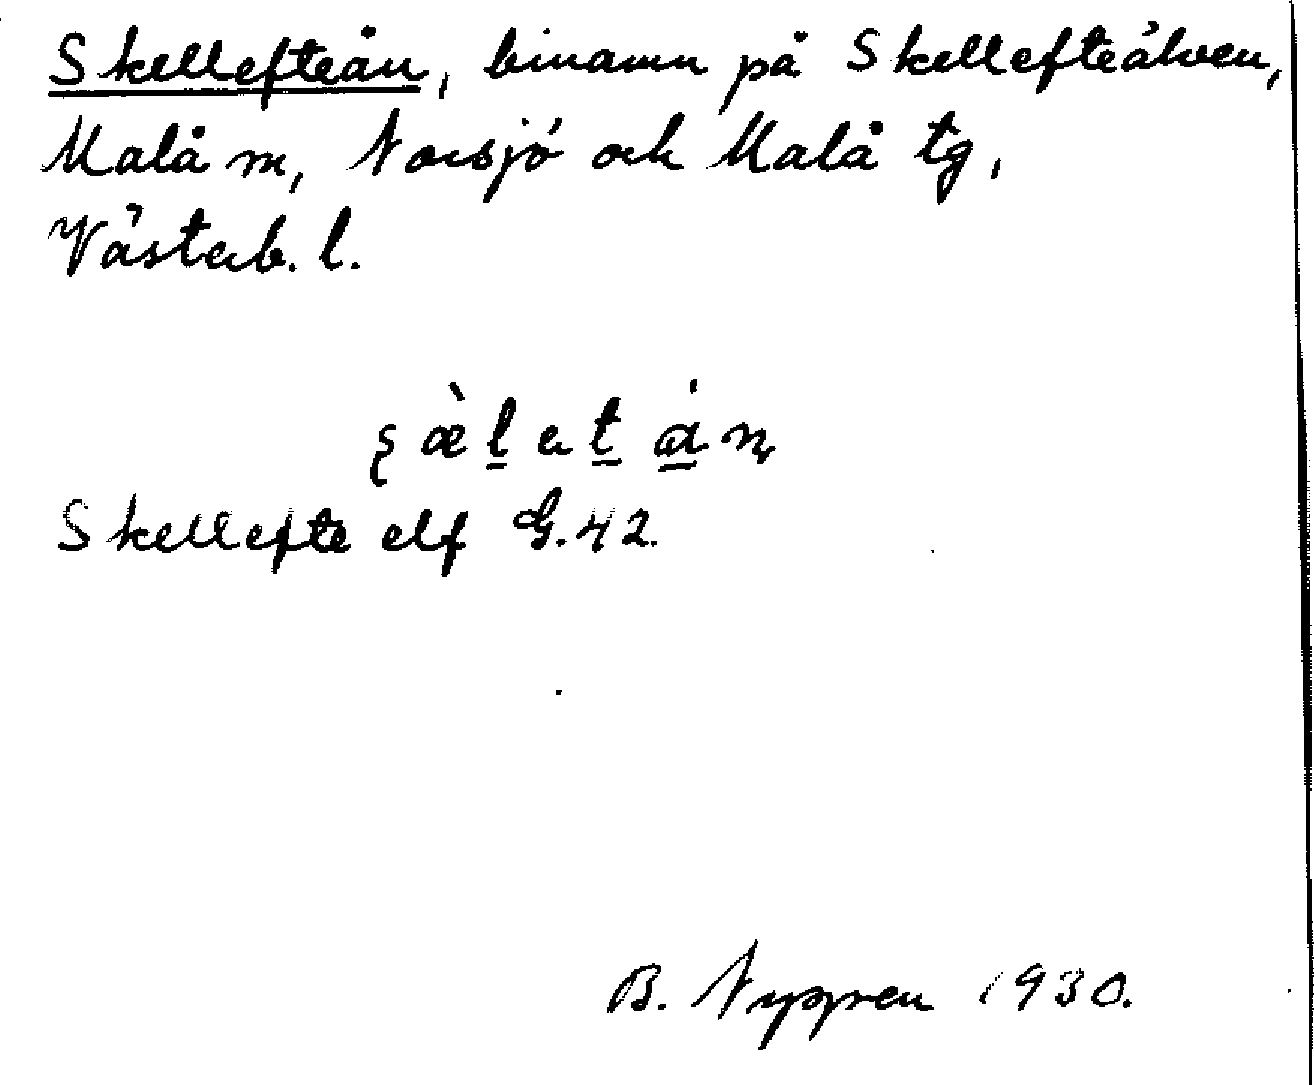 Skellefteån, binamn på Skellefteälven,
Malå m, Norsjö och Malå tg,
Västerb. l.
Skellefte elf G.42.
B. 1930.